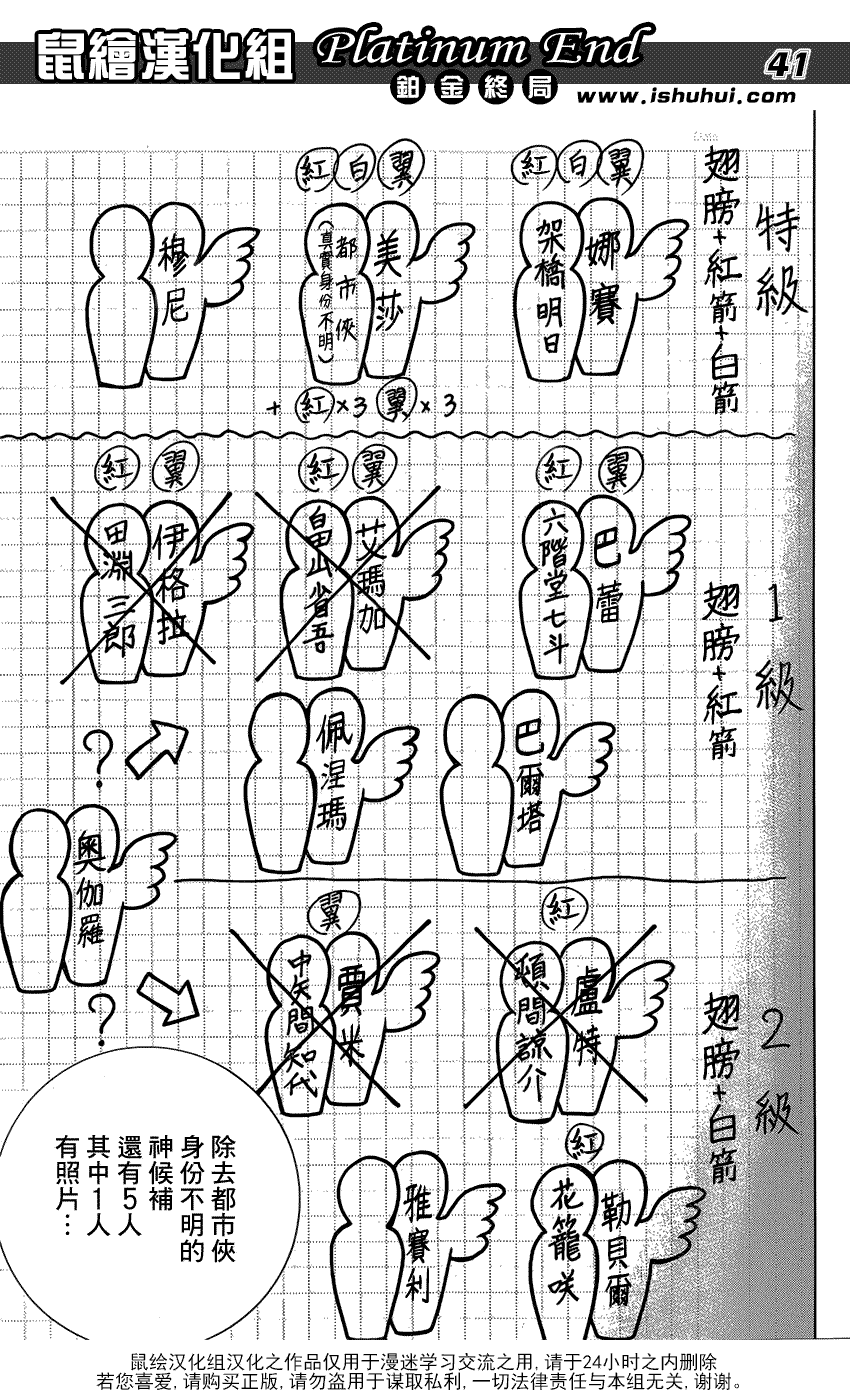 鼠繪漢化組
Platinum End
鉑金終局
www.ishuhui.com
41
特級
翅膀+紅箭+白箭
紅白翼
娜賽
架橋明日
紅白翼
美莎
都市俠
(真實身份不明)
+紅×3 翼×3
穆尼
1級
翅膀+紅箭
紅 翼
巴蕾
六階堂七斗
紅 翼
艾瑪加
畠山省吾
紅 翼
伊格拉
田淵三郎
巴爾塔
佩涅瑪
?
奧伽羅
?
2級
翅膀+白箭
紅
盧特
頓間諒介
翼
賈米
中矢間知代
紅
勒貝爾
花籠咲
雅賽利
除去都市俠
身份不明的
神候補
還有5人
其中1人
有照片…
鼠绘汉化组汉化之作品仅用于漫迷学习交流之用,请于24小时之内删除
若您喜爱,请购买正版,请勿盗用于谋取私利,一切法律责任与本组无关,谢谢。